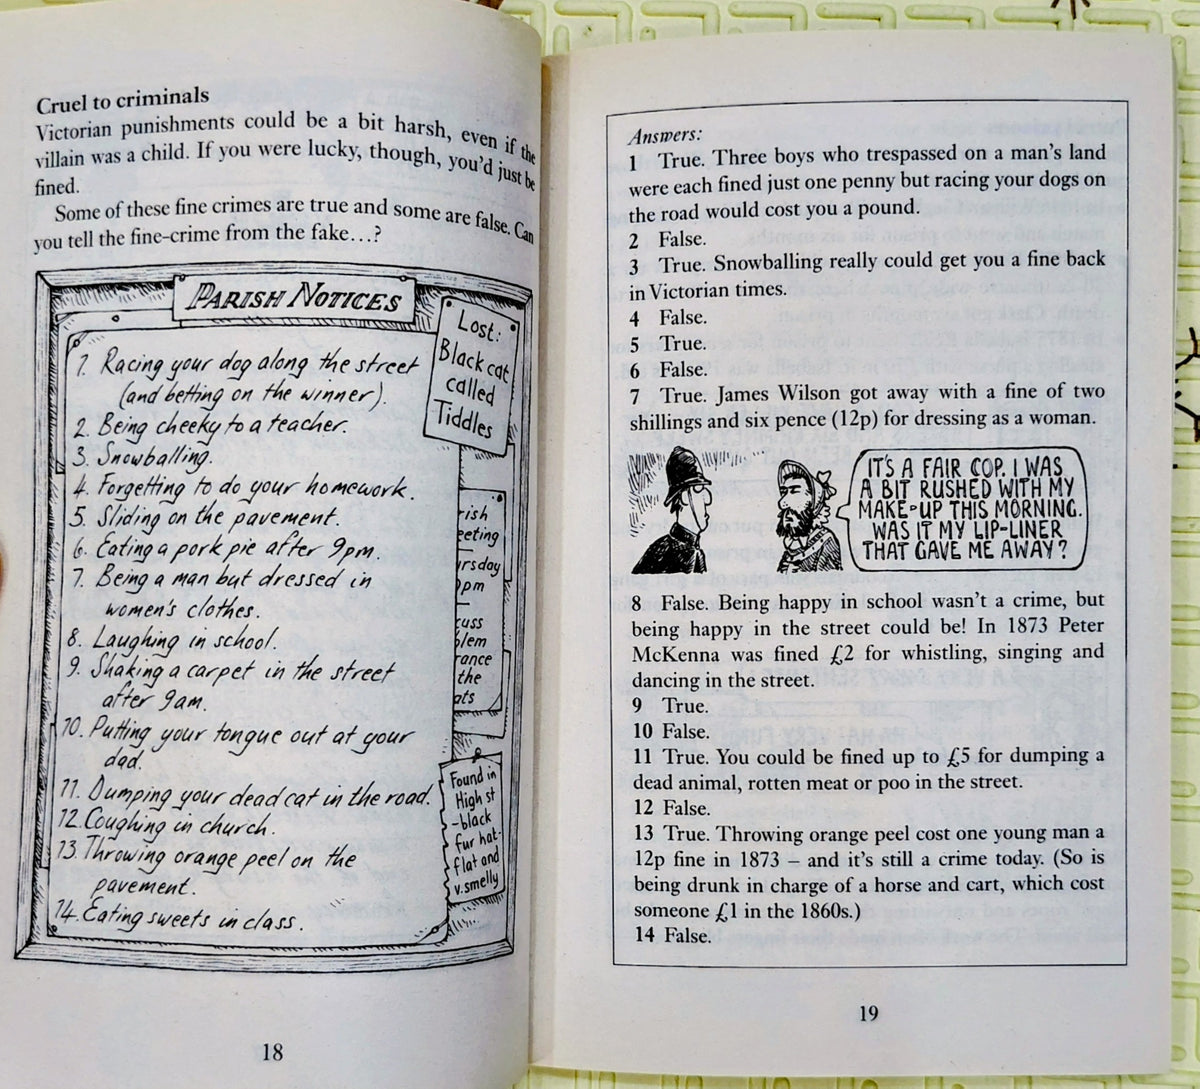 Cruel to criminals
Victorian punishments could be a bit harsh, even if the
villain was a child. If you were lucky, though, you'd just be
fined.
Some of these fine crimes are true and some are false. Can
you tell the fine-crime from the fake…?
PARISH NOTICES
1. Racing your dog along the street
(and betting on the winner).
2. Being cheeky to a teacher.
3. Snowballing.
4. Forgetting to do your homework.
5. Sliding on the pavement.
6. Eating a pork pie after 9pm.
7. Being a man but dressed in
women's clothes.
8. Laughing in school.
9. Shaking a carpet in the street
after 9am.
10. Putting your tongue out at your
dad.
11. Dumping your dead cat in the road.
12. Coughing in church.
13. Throwing orange peel on the
pavement.
14. Eating sweets in class.
Lost:
Black cat
called
Tiddles
rish
eeting
rsday
pm
cuss
blem
rance
the
ats
Found in
High st
-black
fur hat.
flat and
v. smelly
18
Answers:
1 True. Three boys who trespassed on a man's land
were each fined just one penny but racing your dogs on
the road would cost you a pound.
2 False.
3 True. Snowballing really could get you a fine back
in Victorian times.
4 False.
5 True.
6 False.
7 True. James Wilson got away with a fine of two
shillings and six pence (12p) for dressing as a woman.
IT'S A FAIR COP. I WAS
A BIT RUSHED WITH MY
MAKE-UP THIS MORNING.
WAS IT MY LIP-LINER
THAT GAVE ME AWAY?
8 False. Being happy in school wasn't a crime, but
being happy in the street could be! In 1873 Peter
McKenna was fined £2 for whistling, singing and
dancing in the street.
9 True.
10 False.
11 True. You could be fined up to £5 for dumping a
dead animal, rotten meat or poo in the street.
12 False.
13 True. Throwing orange peel cost one young man a
12p fine in 1873 – and it's still a crime today. (So is
being drunk in charge of a horse and cart, which cost
someone £1 in the 1860s.)
14 False.
19